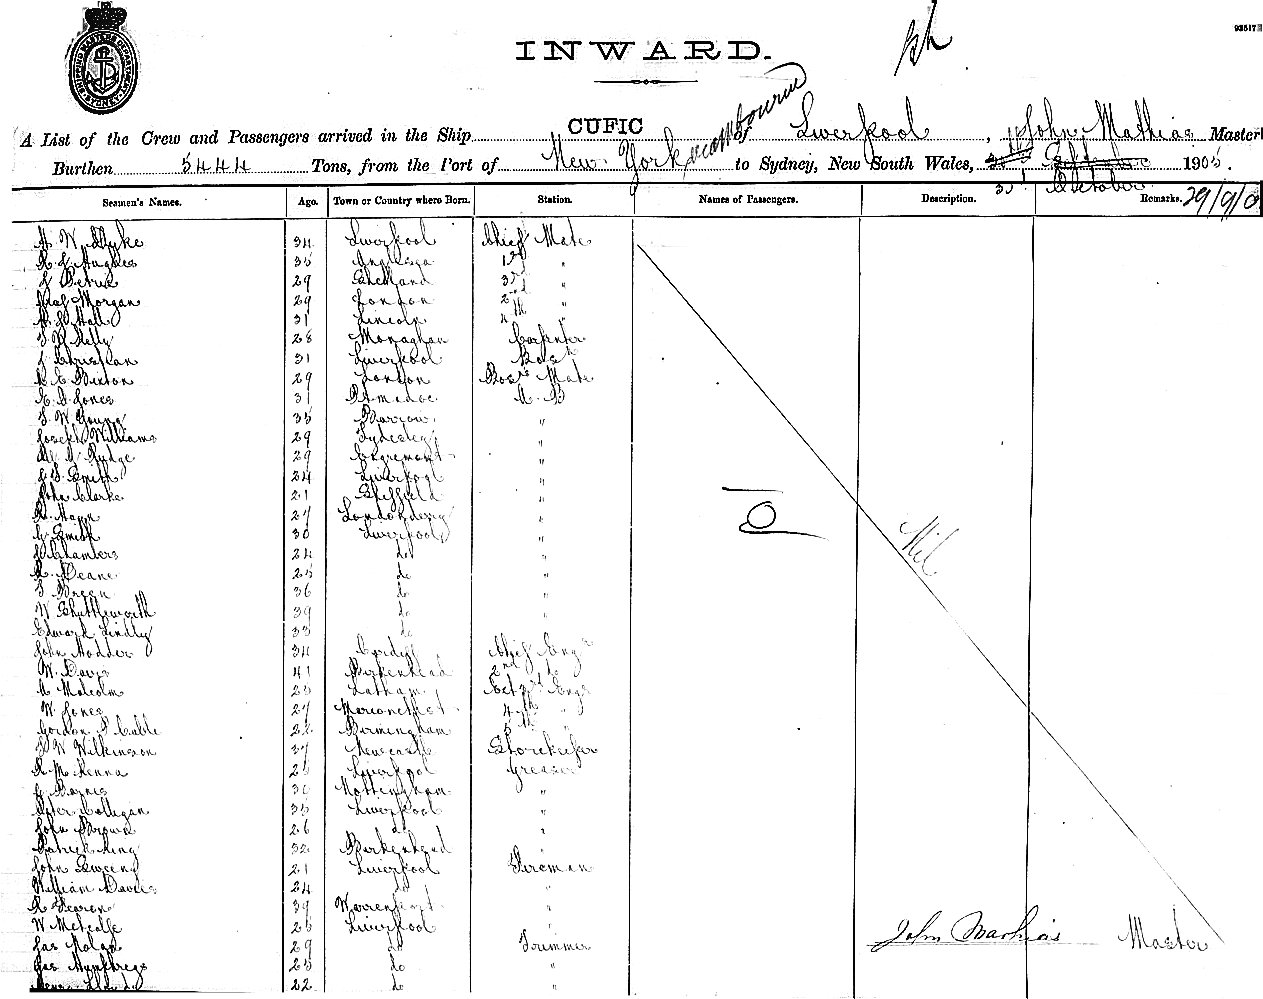 93517
INWARD.
A List of the Crew and Passengers arrived in the Ship CUFIC of Liverpool, John Mathias Master
Burthen 5444 Tons, from the Port of New York via Melbourne to Sydney, New South Wales, 3rd October 1905.
29/9/0
Seamen's Names. Age. Town or Country where Born. Station. Names of Passengers. Description. Remarks.
34 Liverpool Chief Mate
Hughes 35 Anglesea 1st "
Petrie 29 Shetland 3rd "
Morgan 29 London 2nd "
Hall 31 Lincoln 4th "
Kelly 28 Monaghan Carpenter
Christian 31 Liverpool Bosn
Buxton 29 London Bosns Mate
Jones 31 A B
T. W. Young 35 Barrow "
Joseph Williams 29 Tydesley "
Rudge 29 Egremont "
Smith 24 Liverpool "
John Clarke 21 Sheffield "
R. Mann 27 Londonderry "
Smith 30 Liverpool "
Chambers 24 do "
Deane 25 do "
Breen 36 do "
W Shuttleworth 39 do
Edward Lindly 33 do
John Modder 34 Cardiff Chief Engr
W. Davis 41 Birkenhead 2nd do
Malcolm 25 Latham Ext 3rd Engr
W. Jones 27 4th "
Gordon Cable 22 Birmingham 5th "
W Wilkinson 37 Newcastle Storekeeper
McKenna 25 Liverpool Greaser
Barnes 30 Nottingham "
Peter Colligan 35 Liverpool "
John Brown 26 do "
Patrick King 32 Birkenhead "
John Sweeny 21 Liverpool Fireman
William Davies 24 do "
39 Warrenpoint "
W Metcalfe 25 Liverpool "
Jas Nolan 29 do Trimmer
Jas Humphreys 25 do "
22 do "
Nil
John Mathias Master